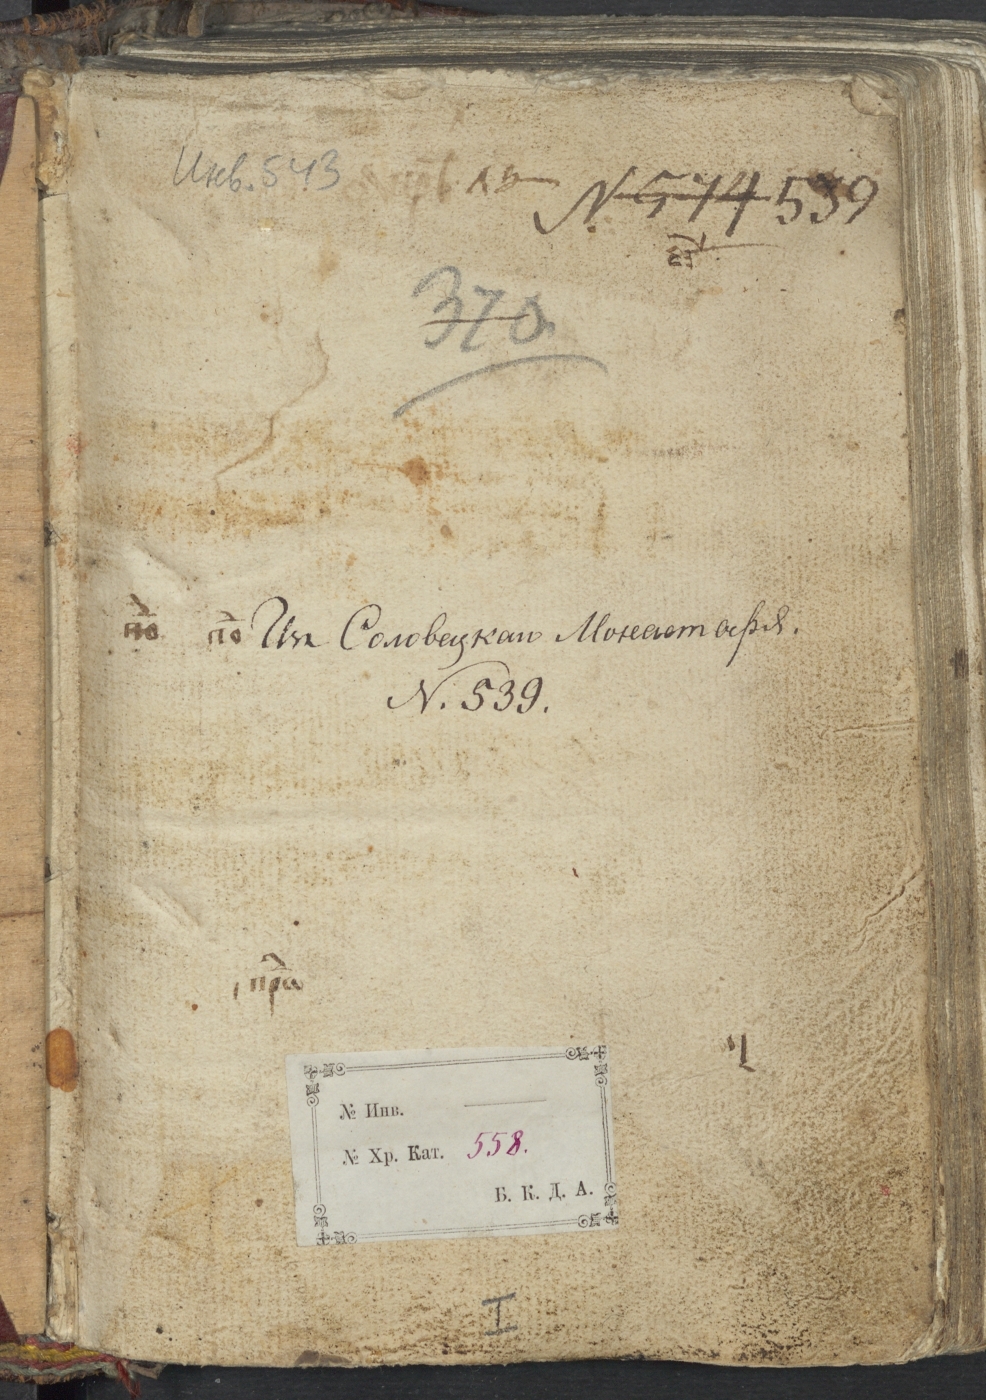 Инв. 543
N. 574 539
370.
Изъ Соловецкаго Монастыря.
N. 539.
пра
ч
№ Инв.
№ Хр. Кат. 558.
Б. К. Д. А.
I